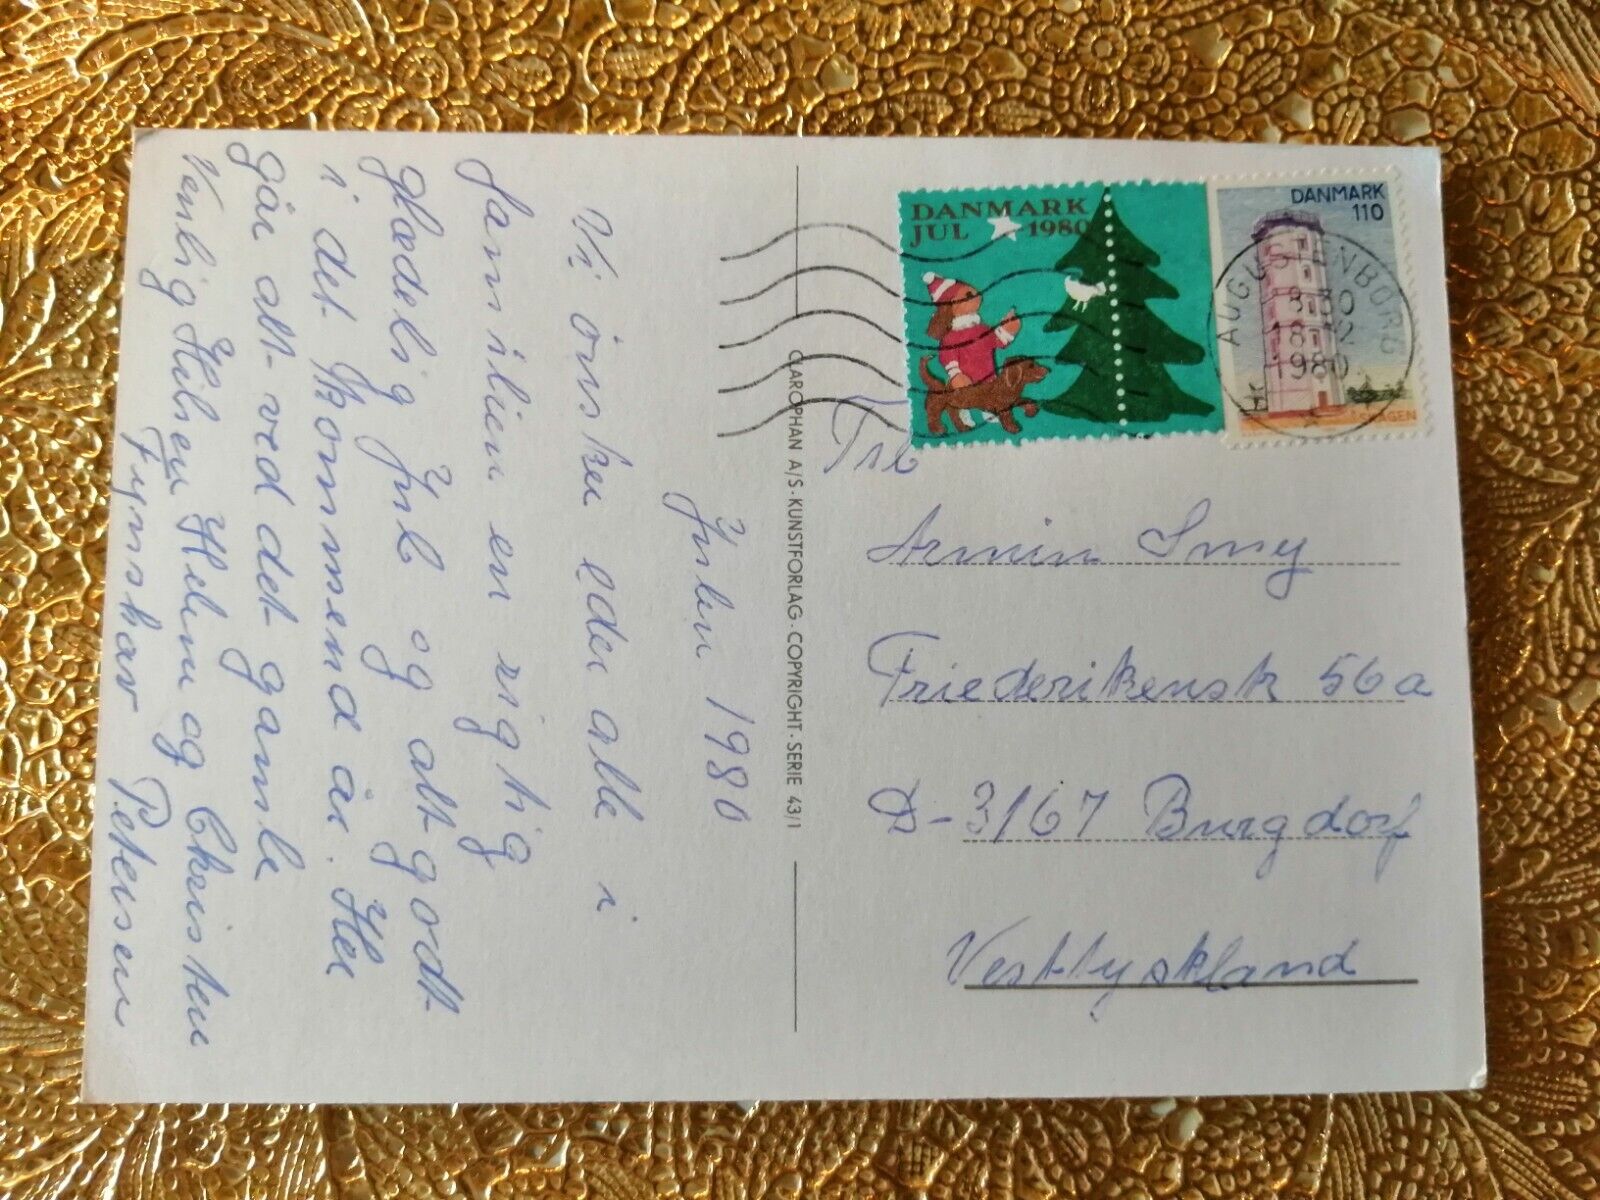 Julen 1980
Vi önsker eder alle i
familien en rigtig
glædelig Jul og alt godt
i det kommende år. Her
går alt ved det gamle
Venlig Hilsen Helene og Christen
Fynshav Petersen
CAROPHAN A/S · KUNSTFORLAG · COPYRIGHT · SERIE 43/1
DANMARK
JUL 1980
DANMARK
110
SKAGEN
AUGUSTENBORG
30
18
1980
Armin Smy
Friederikenstr 56a
D-3167 Burgdorf
Vesttyskland